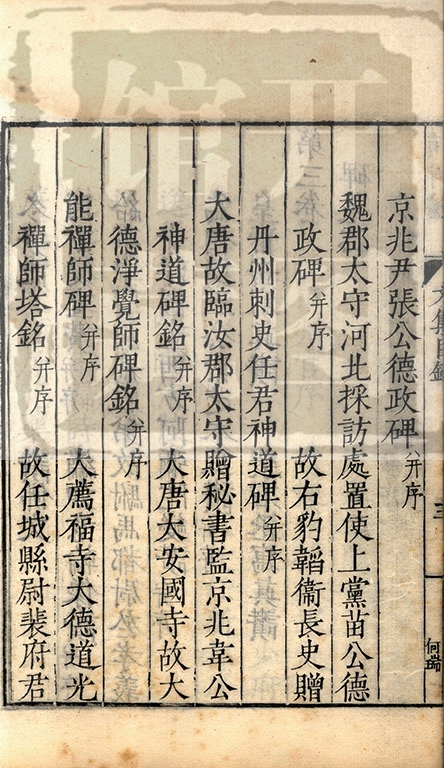 京兆尹張公德政碑 并序
魏郡太守河北採訪處置使上黨苗公德
政碑 并序 故右豹韜衛長史贈
丹州刺史任君神道碑 并序
大唐故臨汝郡太守贈秘書監京兆韋公
神道碑銘 并序 大唐大安國寺故大
德淨覺師碑銘 并序
能禪師碑 并序 大薦福寺大德道光
禪師塔銘 并序 故任城縣尉裴府君
三
何瑞